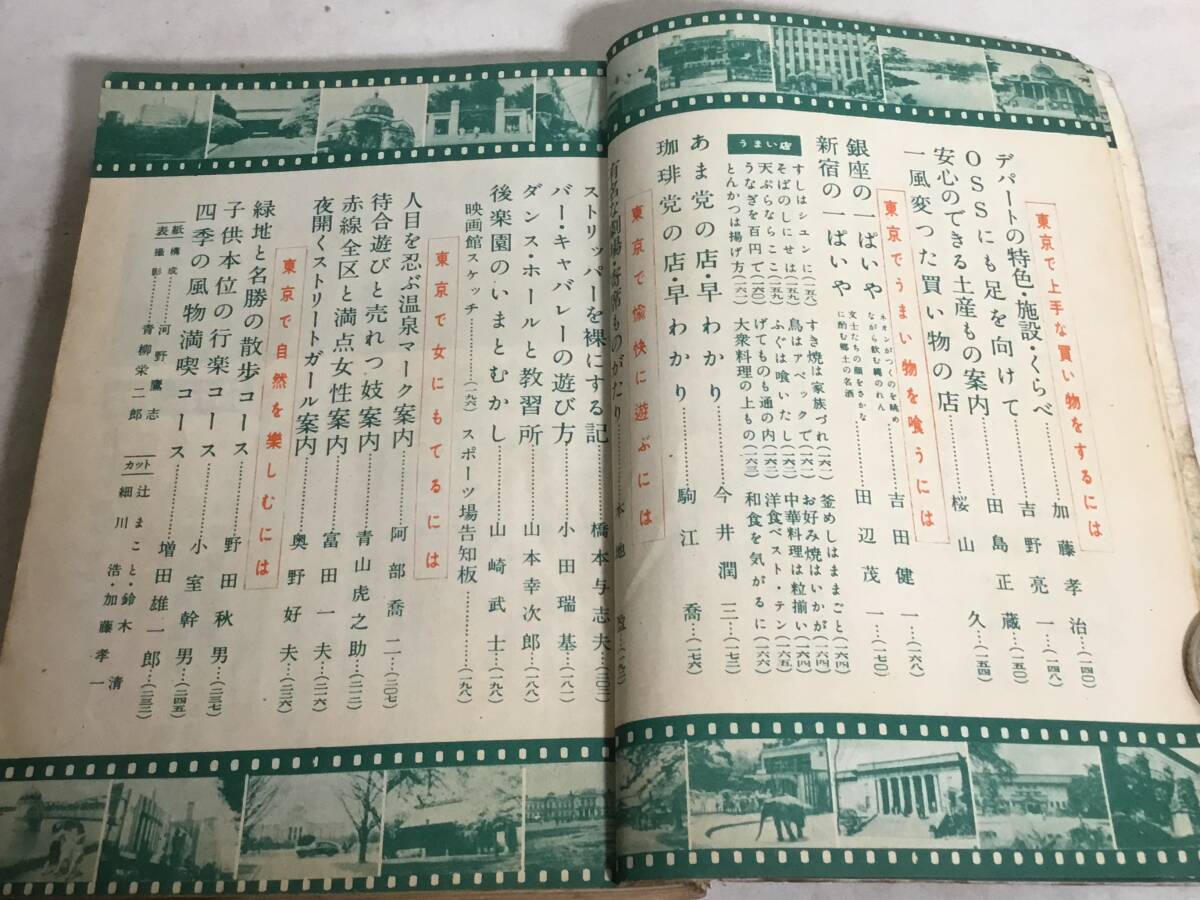 東京で上手な買い物をするには
デパートの特色・施設・くらべ……加藤孝治…(一四〇)
OSSにも足を向けて……吉野亮一…(一四八)
安心のできる土産もの案内……田島正蔵…(一五〇)
一風変つた買い物の店……桜山久…(一五四)
東京でうまい物を喰うには
銀座の一ぱいや ネオンがつくのを眺めながら飲む縄のれん……吉田健一…(一六八)
新宿の一ぱいや 文士たちの顔をさかなに酌む郷土の名酒……田辺茂一…(一七〇)
うまい店
すしはシュンに(一五八)
そばのしにせは(一五九)
天ぷらならここ(一五九)
うなぎを百円で(一六〇)
とんかつは揚げ方(一六一)
すき焼は家族づれ(一六一)
鳥はアベックで(一六二)
ふぐは喰いたし(一六二)
げてものも通の内(一六二)
大衆料理の上もの(一六三)
釜めしはままごと(一六四)
お好み焼はいかが(一六四)
中華料理は粒揃い(一六四)
洋食ベスト・テン(一六五)
和食を気がるに(一六六)
あま党の店・早わかり……今井潤三…(一七二)
珈琲党の店・早わかり……駒江喬…(一七六)
東京で愉快に遊ぶには
有名な劇場・寄席ものがたり
ストリッパーを裸にする記……橋本与志夫…(二〇二)
バー・キャバレーの遊び方……小田瑞基…(一八一)
ダンス・ホールと教習所……山本幸次郎…(一八八)
後楽園のいまとむかし……山崎武士…(一九八)
映画館スケッチ……(一九六)
スポーツ場告知板……(一九八)
東京で女にもてるには
人目を忍ぶ温泉マーク案内……阿部喬二…(二〇七)
待合遊びと売れつ妓案内……青山虎之助…(二一二)
赤線全区と満点女性案内……富田一夫…(二一六)
夜開くストリートガール案内……奥野好夫…(二二六)
東京で自然を樂しむには
緑地と名勝の散歩コース……増田雄一郎…(二三二)
子供本位の行楽コース……野田秋男…(二三七)
四季の風物満喫コース……小室幹男…(二四五)
表紙
構成……河野鷹志
撮影……青柳栄二郎
カット 辻まこと・鈴木清
細川浩・加藤孝一